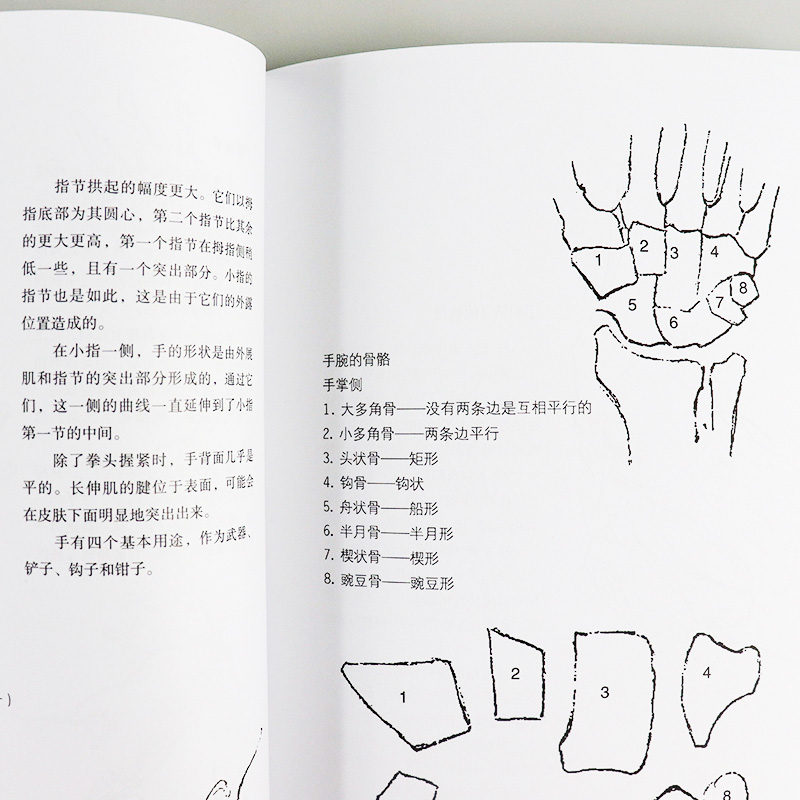 指节拱起的幅度更大。它们以拇
指底部为其圆心，第二个指节比其余
的更大更高，第一个指节在拇指侧稍
低一些，且有一个突出部分。小指的
指节也是如此，这是由于它们的外露
位置造成的。
在小指一侧，手的形状是由外展
肌和指节的突出部分形成的，通过它
们，这一侧的曲线一直延伸到了小指
第一节的中间。
除了拳头握紧时，手背面几乎是
平的。长伸肌的腱位于表面，可能会
在皮肤下面明显地突出出来。
手有四个基本用途，作为武器、
铲子、钩子和钳子。
1
2
3
4
5
6
7
8
手腕的骨骼
手掌侧
1. 大多角骨——没有两条边是互相平行的
2. 小多角骨——两条边平行
3. 头状骨——矩形
4. 钩骨——钩状
5. 舟状骨——船形
6. 半月骨——半月形
7. 楔状骨——楔形
8. 豌豆骨——豌豆形
1
2
3
4
8